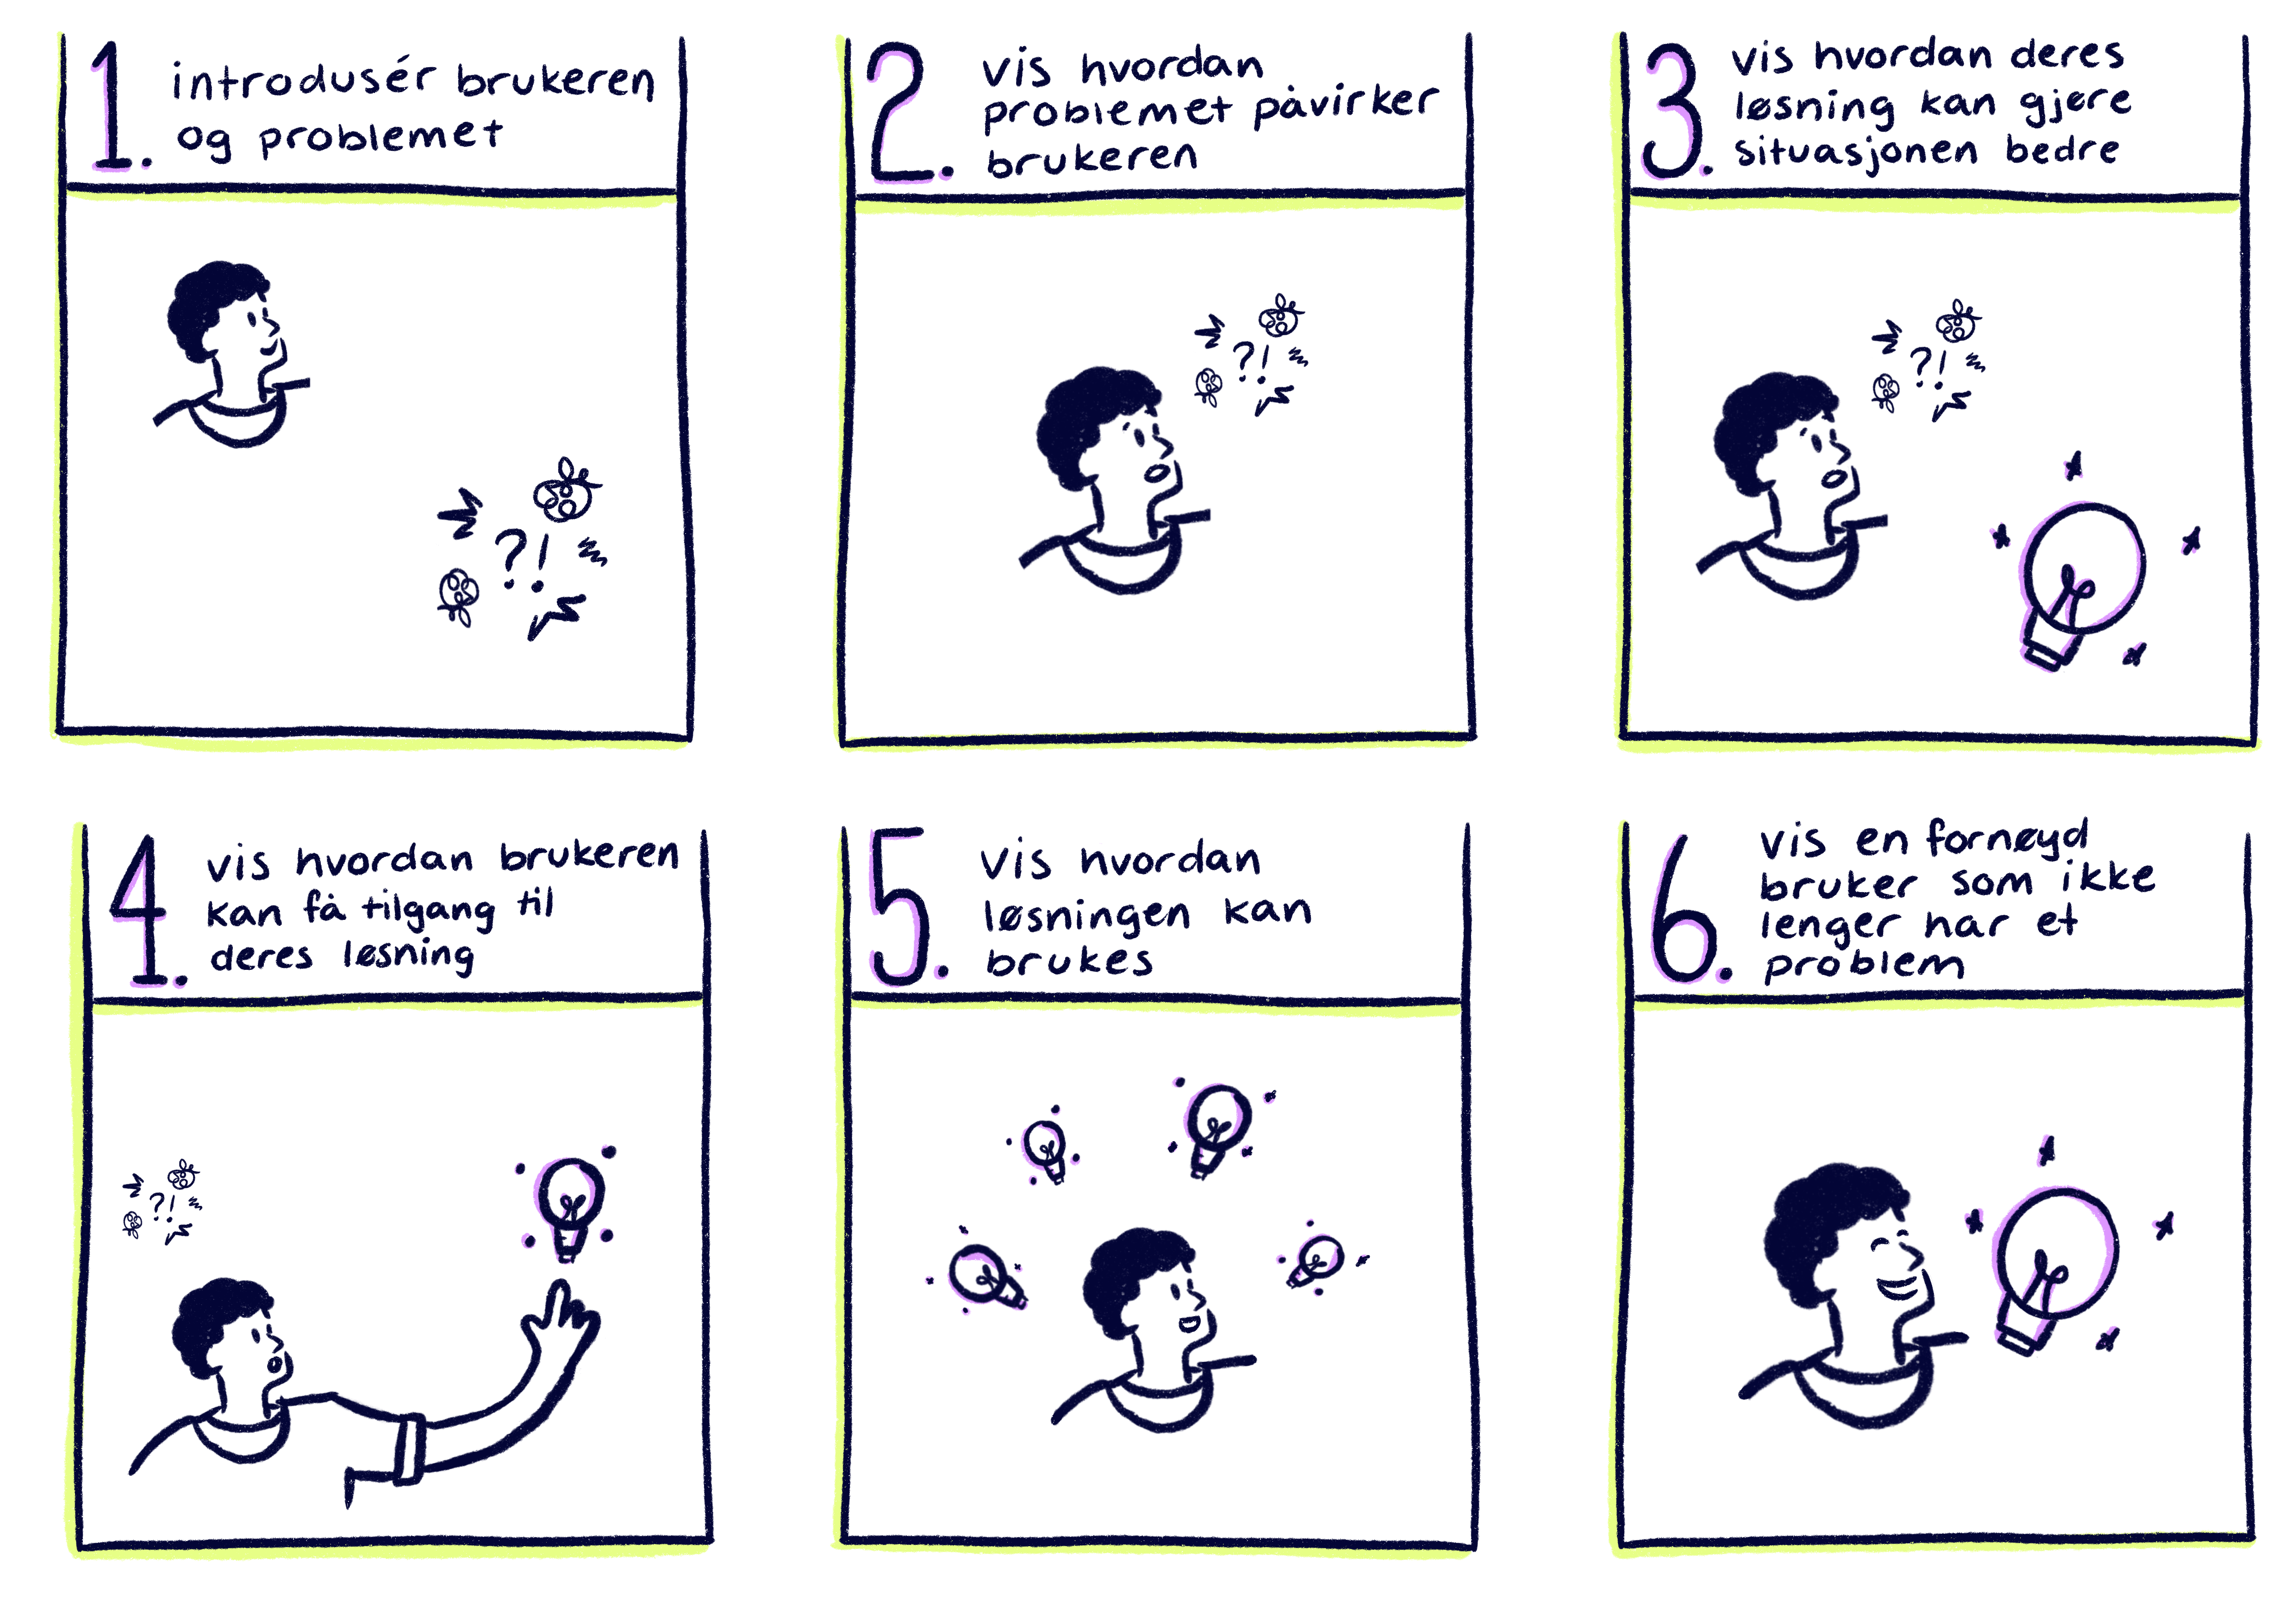 1. introdusér brukeren
og problemet
?!
2. vis hvordan
problemet påvirker
brukeren
?!
3. vis hvordan deres
løsning kan gjøre
situasjonen bedre
?!
4. vis hvordan brukeren
kan få tilgang til
deres løsning
?!
5. vis hvordan
løsningen kan
brukes
6. vis en fornøyd
bruker som ikke
lenger har et
problem